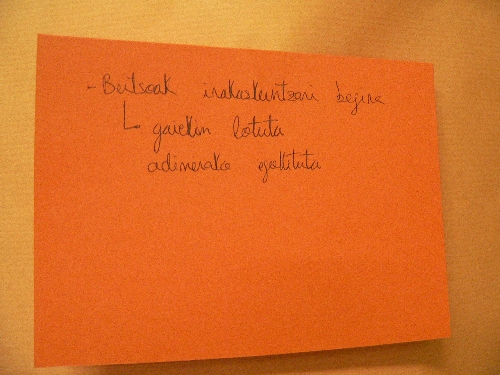 - Bertsoak irakaskuntzari begira
gaiekin lotuta
adinerako egokituta